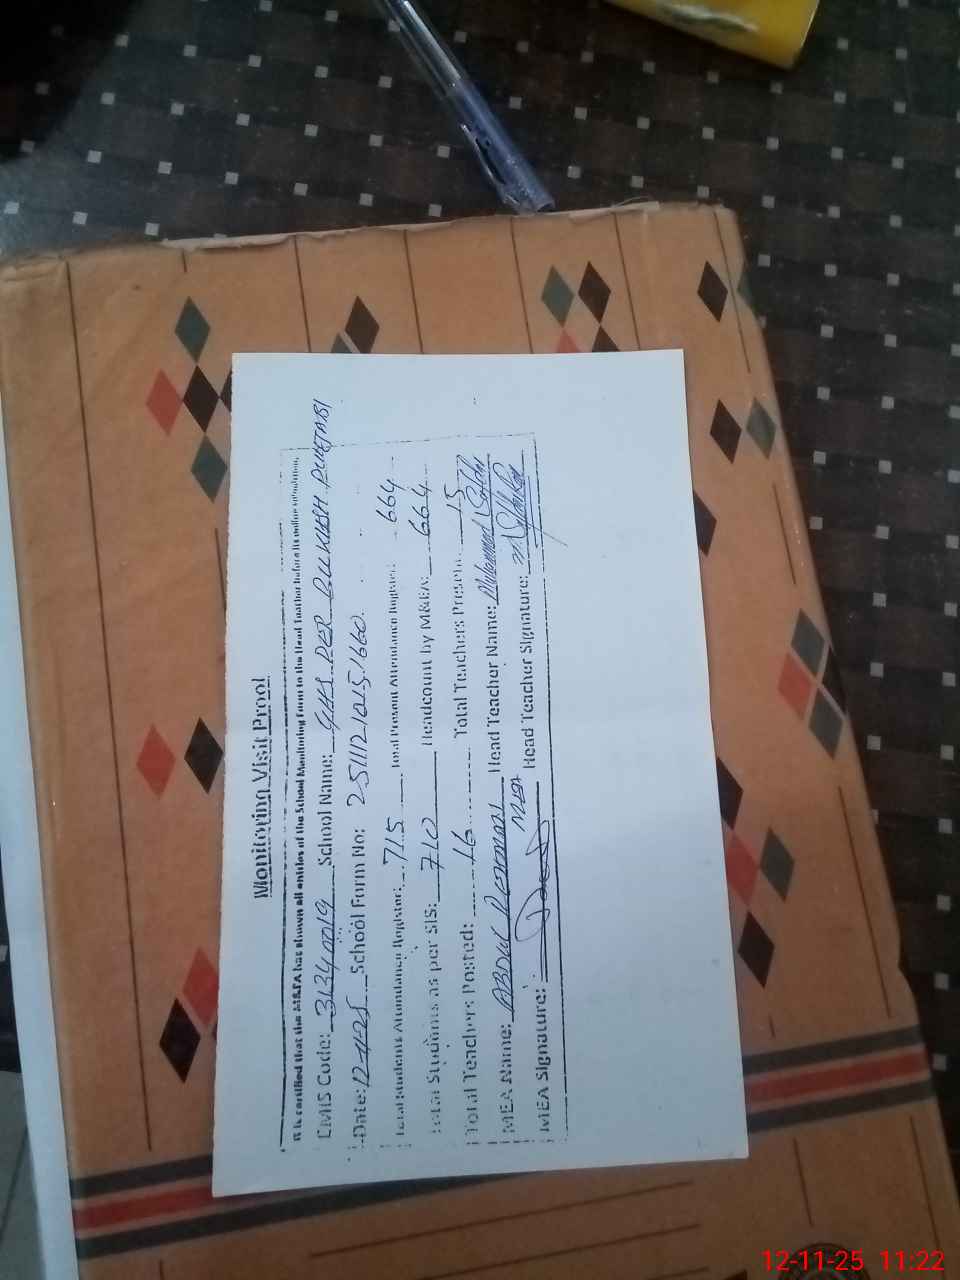 Monitoring Visit Proof
It is certified that the M&EA has shown all entries of the School Monitoring Form to the Head Teacher before its online submission.
EMIS Code: 31340019 School Name: GHS DER BUKHSH PUNJABI
Date: 12-11-25 School Form No: 25111210151660
Total Students Attendance Register: 715 Total Present Attendance Register: 664
Total Students as per SIS: 710 Headcount by M&EA: 664
Total Teachers Posted: 16 Total Teachers Present: 15
MEA Name: ABDUL REHMAN Head Teacher Name: Muhammad
MEA
MEA Signature: Head Teacher Signature:
12-11-25 11:22